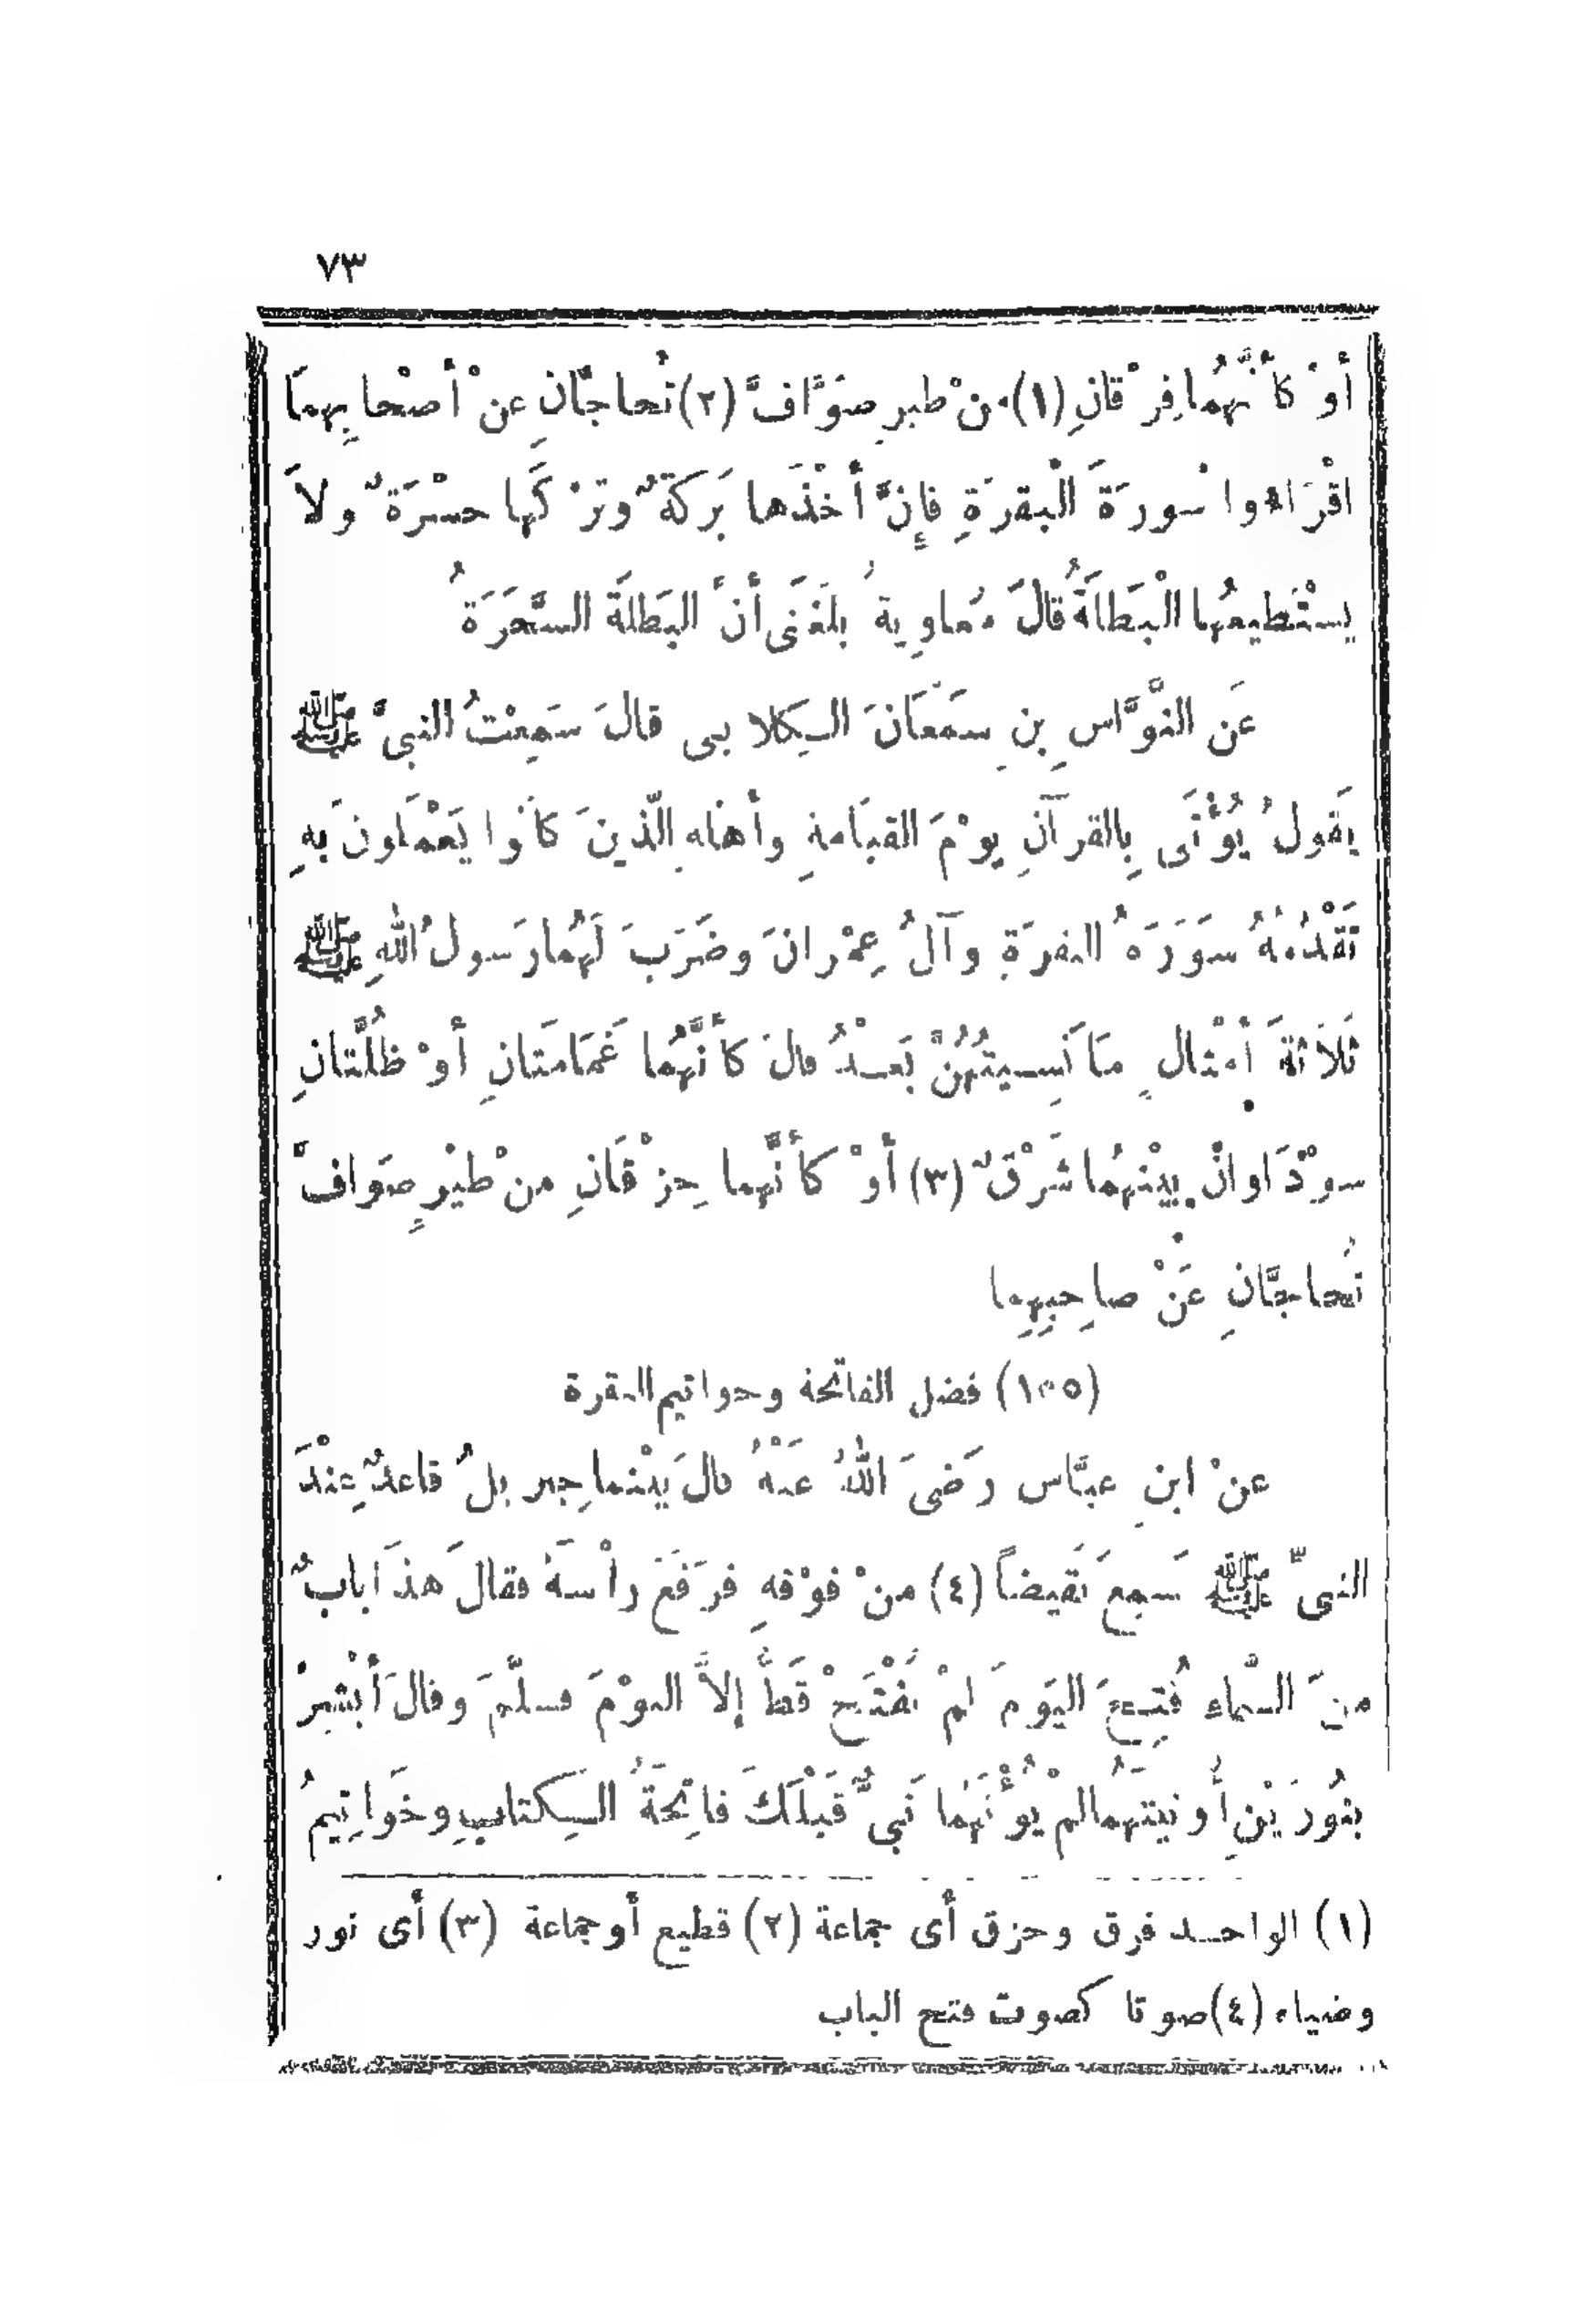 ٧٣
أوْ كأنَّهُما فِرْقانِ (١) من طير صَوَّافَّ (٢) تُحاجَّانِ عنْ أصْحابِهِمَا
اقْرَاءُوا سُورَةَ الْبقرَةِ فإِنَّ أخْذَها بَركةٌ وترْكَها حسْرَةٌ ولاَ
يسْتَطيعُها الْبَطَلَةُ قالَ مُعاوِيةُ بلَغَنى أنَّ البَطلَةَ السَّحَرَةُ
عَن النوَّاسِ بنِ سمَعَانَ الكِلابى قالَ سَمِعْتُ النبىَّ ﷺ
يَقولُ يُؤْتَى بِالقرآنِ يوْمَ القيَامةِ وأهْلهِ الّذينَ كانُوا يَعْمَلونَ بهِ
تَقْدُمُهُ سَورَةُ البقرَةِ وآلُ عِمْرانَ وضَرَبَ لَهُما رَسولُ اللهِ ﷺ
ثَلاَثةَ أمْثالٍ مَا نَسِيتُهُنَّ بَعْدُ قالَ كأنَّهُما غَمَامَتانِ أوْ ظُلَّتانِ
سوْدَاوانِ بيْنهُما شَرْقٌ (٣) أوْ كأنَّهما حِزْقانِ منْ طيْرٍ صَوافَّ
تُحاجَّانِ عَنْ صاحِبِهِما
(١٥٥) فضل الفاتحة وخواتيم البقرة
عنْ ابنِ عبَّاس رَضىَ اللهُ عَنْهُ قالَ بيْنما جِبريلُ قاعدٌ عِنْدَ
النبىّ ﷺ سَمِعَ نَقيضاً (٤) منْ فوْقهِ فرَفَعَ رأْسَهُ فقالَ هذَا بابٌ
منَ السّماءِ فُتِحَ اليَومَ لمْ يُفْتَحْ قَطُّ إلاَّ اليوْمَ فسلّمَ وقالَ أبْشِرْ
بنُورَيْنِ أُوتيتَهُما لمْ يُؤْتَهُما نَبىٌّ قَبْلَكَ فاتِحَةُ الكِتابِ وخَوَاتِيمُ
(١) الواحد فرق وحزق أى جماعة (٢) قطيع أو جماعة (٣) أى نور
وضياء (٤) صوتا كصوت فتح الباب